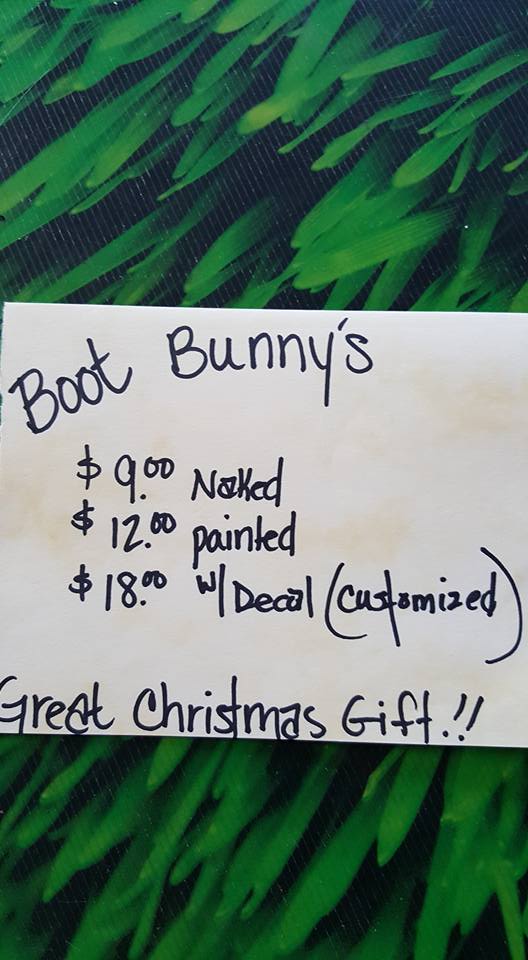 Boot Bunny's
$ 9.00 Naked
$ 12.00 painted
$ 18.00 w/ Decal (Customized)
Great Christmas Gift.!!